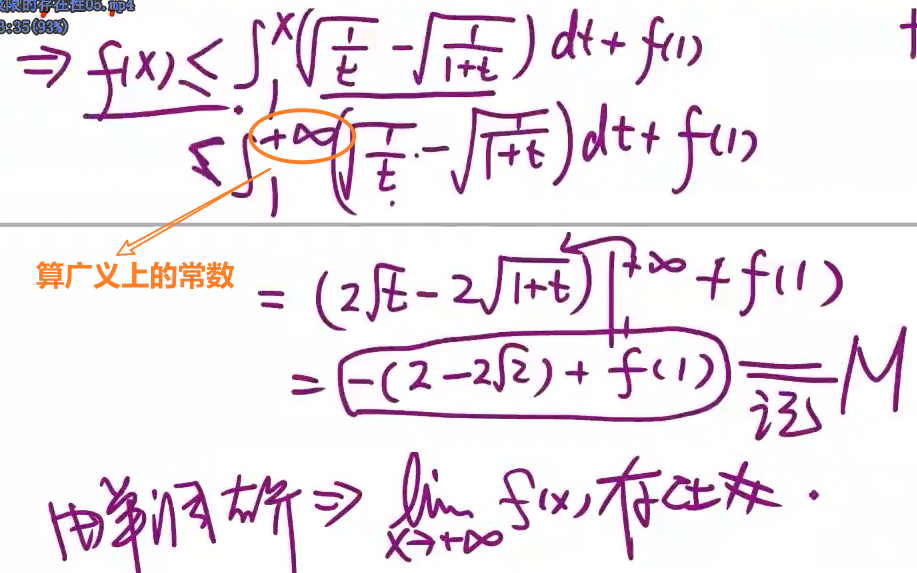 限的存在性05.mp4
3:35(93%)
⇒ f(x) ≤ ∫₁ˣ (√(1/t) − √(1/(1+t))) dt + f(1)
≤ ∫₁^{+∞} (√(1/t) − √(1/(1+t))) dt + f(1)
算广义上的常数
= (2√t − 2√(1+t)) |₁^{+∞} + f(1)
= −(2 − 2√2) + f(1) 记为 M
由单调有界 ⇒ lim_{x→+∞} f(x) 存在.